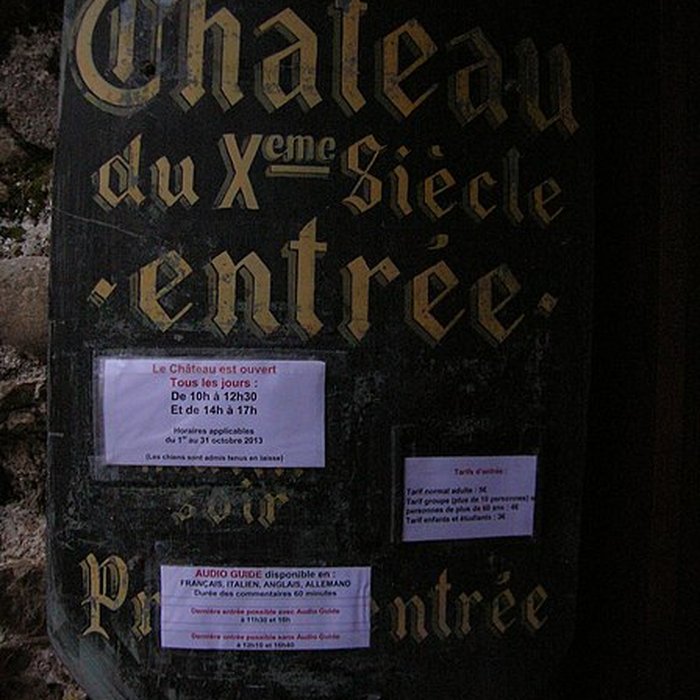 Château
du Xeme Siècle
·entrée·
Le Château est ouvert
Tous les jours :
De 10h à 12h30
Et de 14h à 17h
Horaires applicables
du 1er au 31 octobre 2013
(Les chiens sont admis tenus en laisse)
soir
Tarifs d'entrée :
Tarif normal adulte : 5€
Tarif groupe (plus de 10 personnes)
personnes de plus de 60 ans : 4€
Tarif enfants et étudiants : 3€
Pr entrée
AUDIO GUIDE disponible en :
FRANÇAIS, ITALIEN, ANGLAIS, ALLEMAND
Durée des commentaires 60 minutes
Dernière entrée possible avec Audio Guide
à 11h30 et 16h
Dernière entrée possible sans Audio Guide
à 12h10 et 16h40